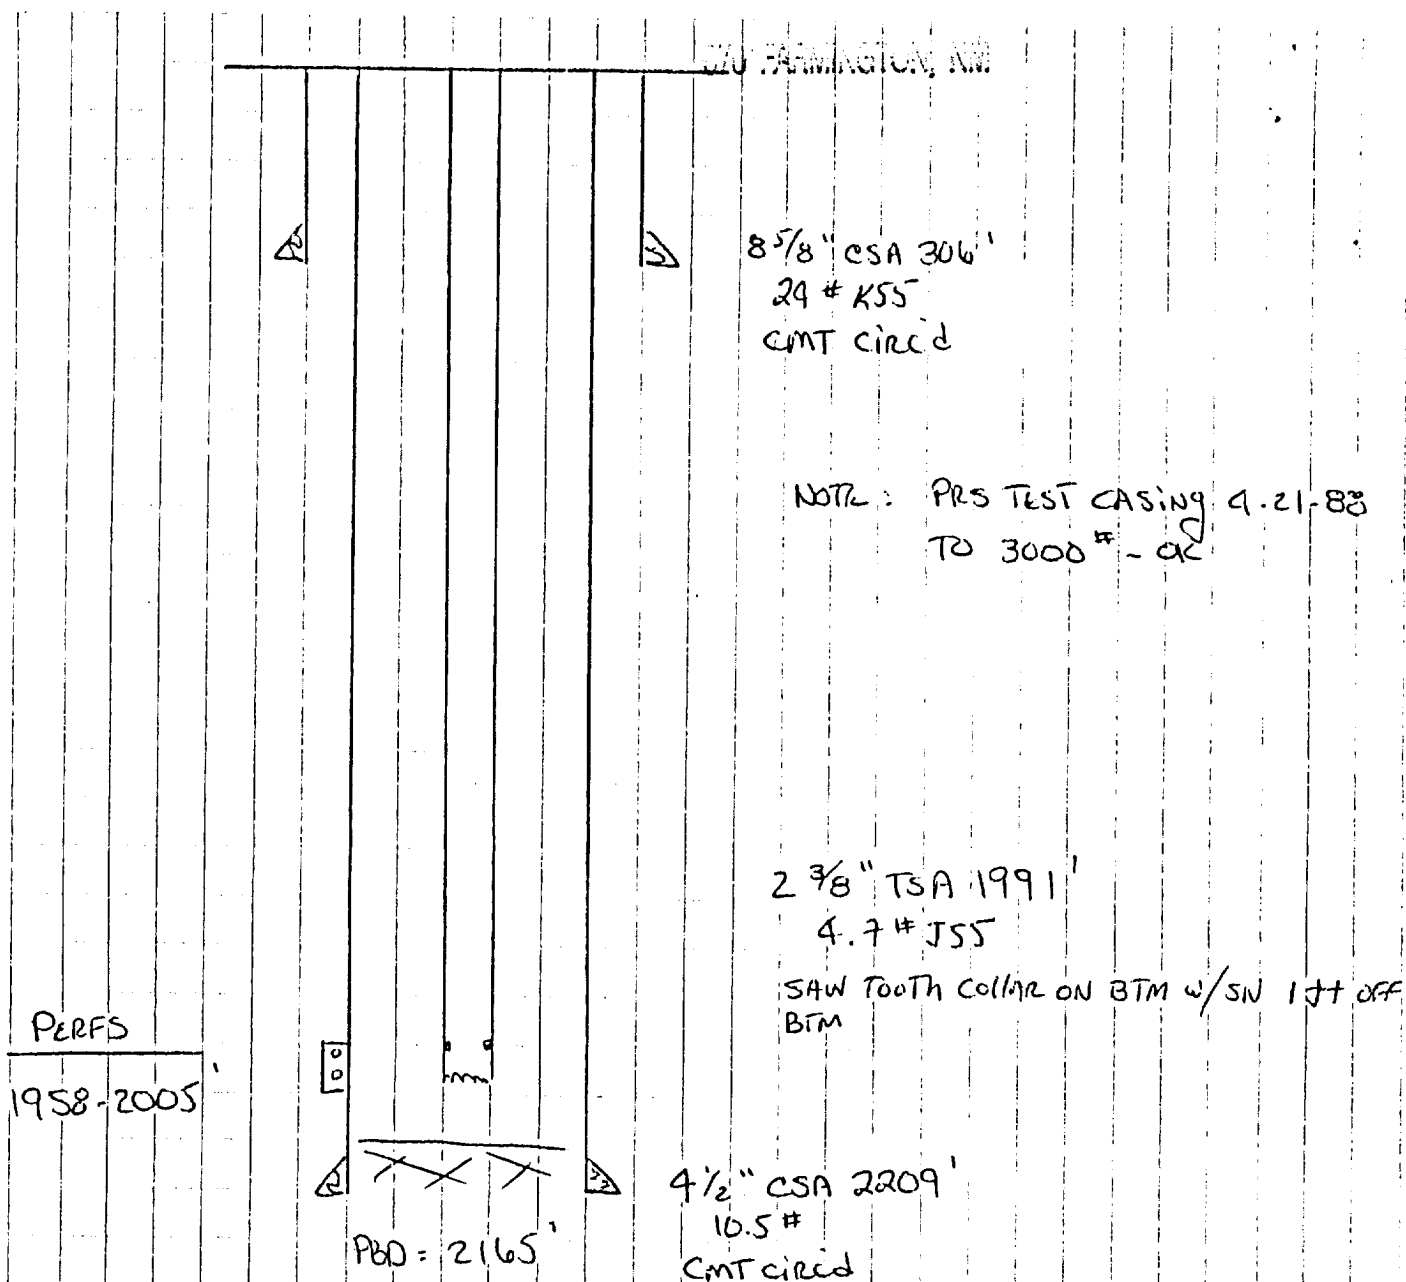 FARMINGTON, NM
8 5/8" CSA 306'
24 # K55
CMT CIRC'd
NOTE: PRS TEST CASINg 4.21.88
TO 3000 # - OK
2 3/8" TSA 1991'
4.7 # J55
SAW TOOTh COllAR ON BTM w/SN 1 JT OFF
BTM
PERFS
1958-2005'
4 1/2" CSA 2209'
10.5 #
CMT CIRC'd
PBD = 2165'